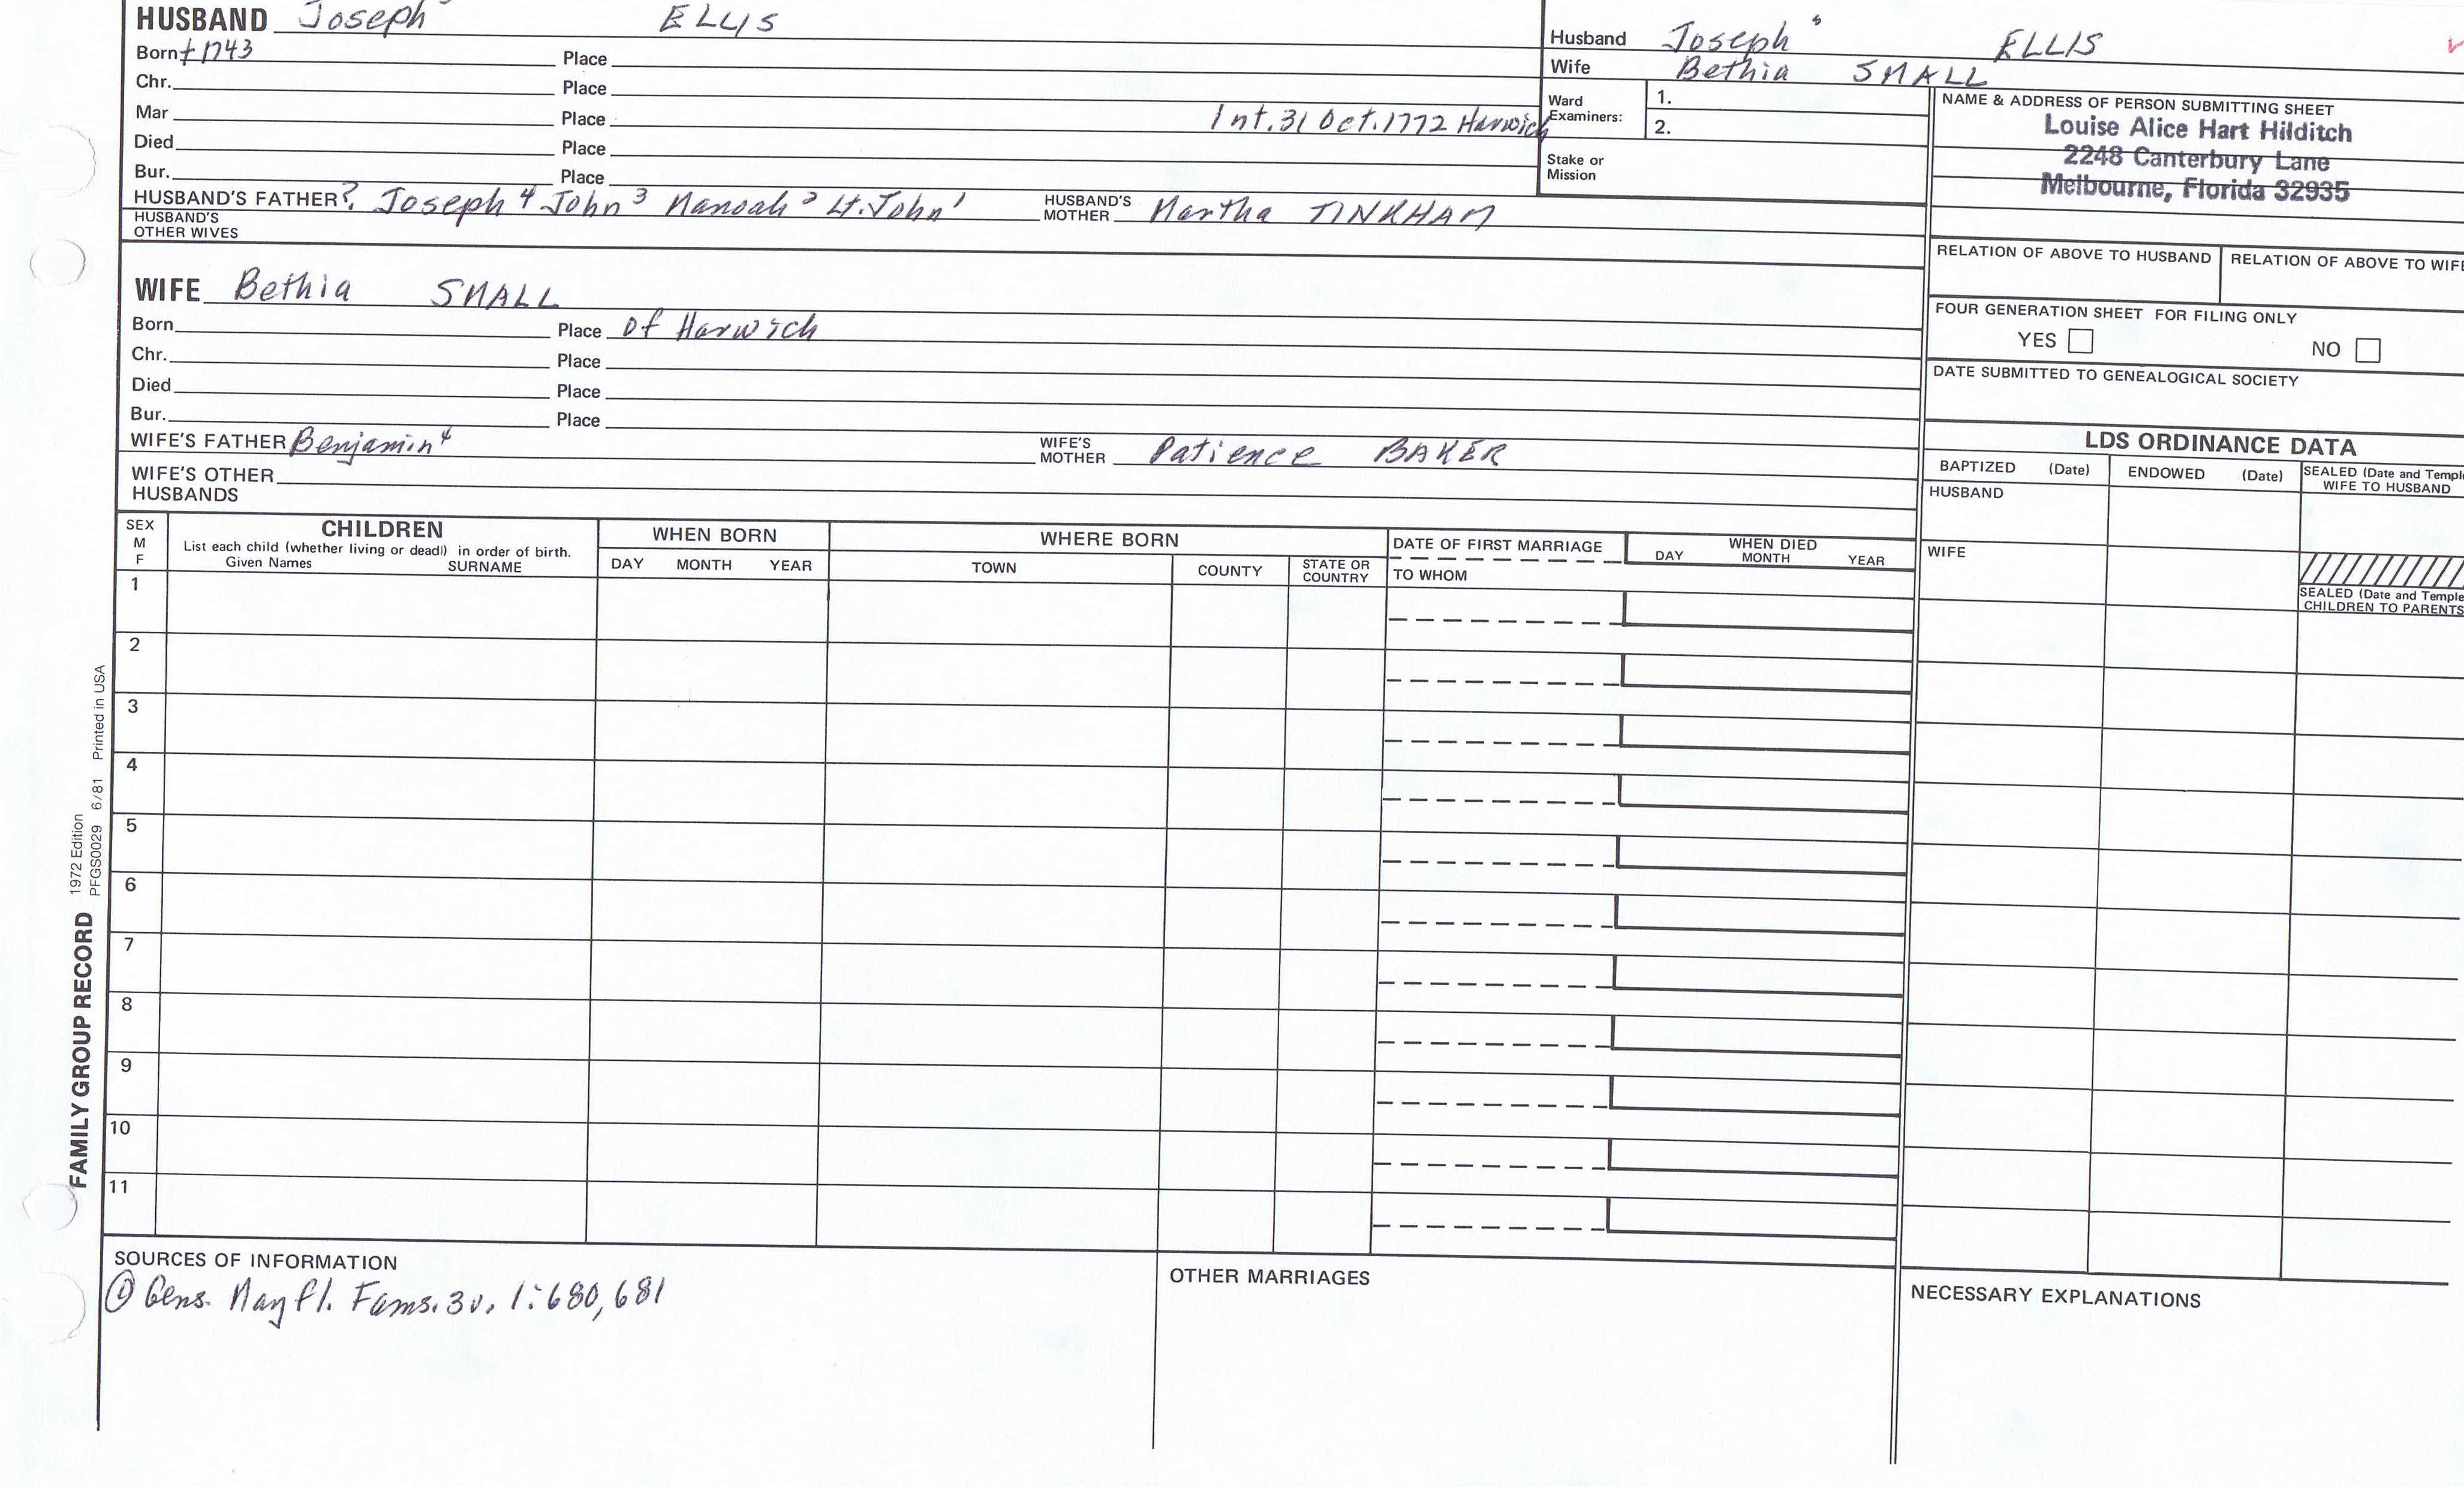 HUSBAND Joseph ELLIS
Born ± 1743 Place
Chr. Place
Mar Place Int. 31 Oct. 1772 Harwich
Died Place
Bur. Place
HUSBAND'S FATHER ? Joseph⁴ John³ Manoah² Lt. John¹ HUSBAND'S MOTHER Martha TINKHAM
HUSBAND'S OTHER WIVES
Husband Joseph⁵ ELLIS
Wife Bethia SMALL
Ward Examiners: 1.
2.
Stake or Mission
NAME & ADDRESS OF PERSON SUBMITTING SHEET
Louise Alice Hart Hilditch
2248 Canterbury Lane
Melbourne, Florida 32935
RELATION OF ABOVE TO HUSBAND RELATION OF ABOVE TO WIFE
FOUR GENERATION SHEET FOR FILING ONLY
YES NO
DATE SUBMITTED TO GENEALOGICAL SOCIETY
WIFE Bethia SMALL
Born Place of Harwich
Chr. Place
Died Place
Bur. Place
WIFE'S FATHER Benjamin⁴ WIFE'S MOTHER Patience BAKER
WIFE'S OTHER HUSBANDS
LDS ORDINANCE DATA
BAPTIZED (Date) ENDOWED (Date) SEALED (Date and Temple
WIFE TO HUSBAND
HUSBAND
WIFE
SEALED (Date and Temple
CHILDREN TO PARENTS
SEX
M
F
CHILDREN
List each child (whether living or dead) in order of birth.
Given Names SURNAME
WHEN BORN
DAY MONTH YEAR
WHERE BORN
TOWN COUNTY STATE OR COUNTRY
DATE OF FIRST MARRIAGE
TO WHOM
WHEN DIED
DAY MONTH YEAR
1
2
3
4
5
6
7
8
9
10
11
FAMILY GROUP RECORD
1972 Edition
PFGS0029 6/81 Printed in USA
SOURCES OF INFORMATION
① Gens. Mayfl. Fams. 3v. 1:680,681
OTHER MARRIAGES
NECESSARY EXPLANATIONS